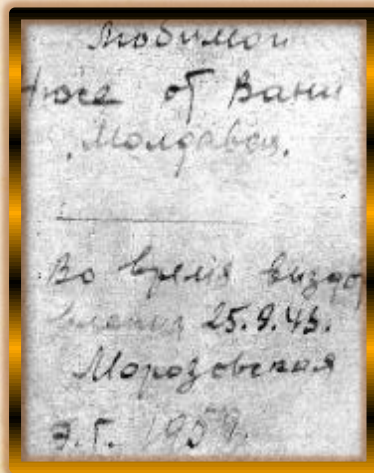 Любимой
Нюсе от Вани
Молдався.
Во время выздор
вления 25.9.43.
Морозовская
Э.Г. 1959.